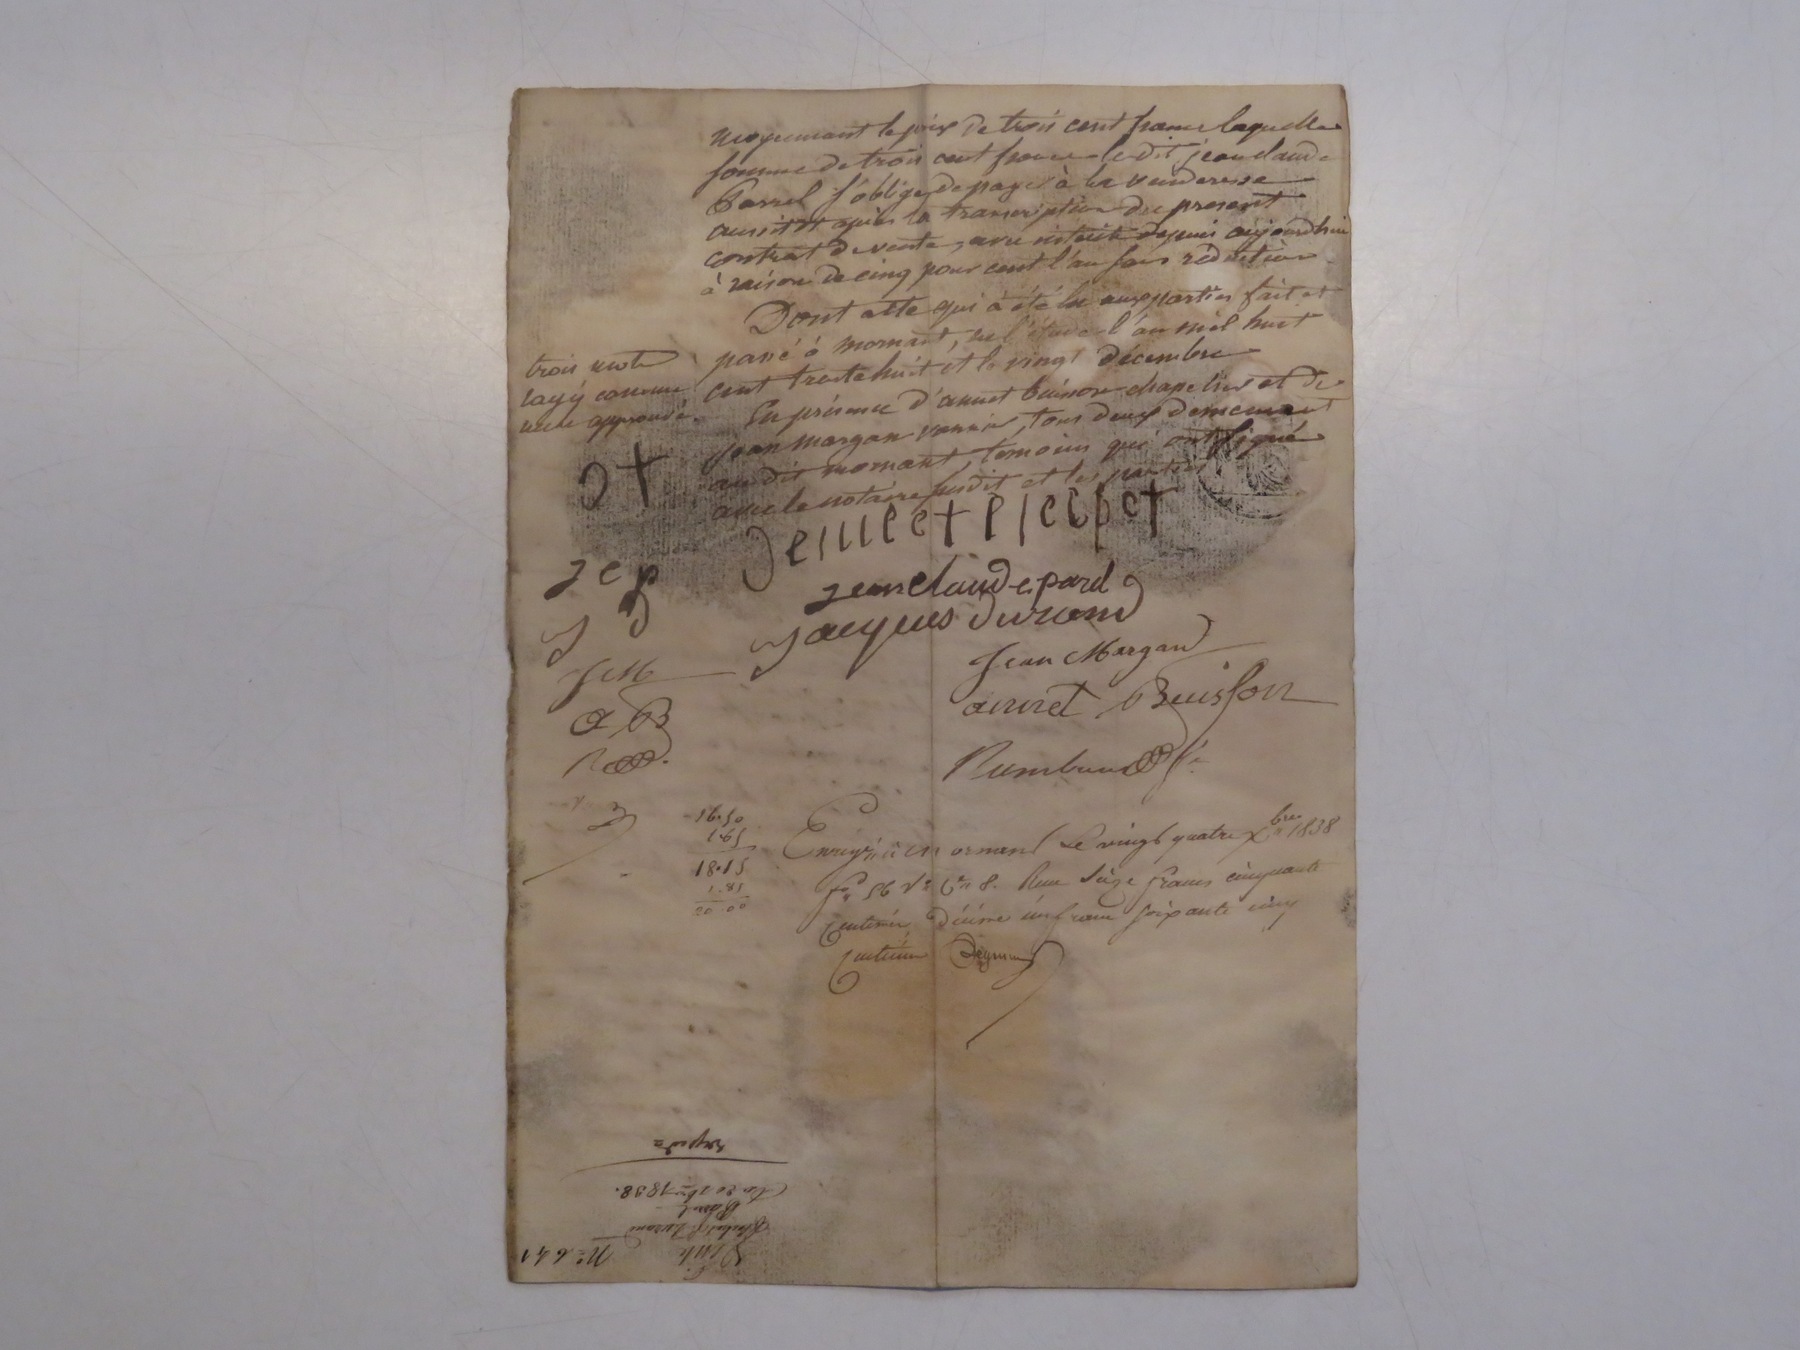 moyennant le prix de trois cent francs laquelle
somme de trois cent francs le dit jean claude
s'oblige de payer à la venderesse
aussitot après la transcription du present
contrat de vente, avec intérêts depuis aujourdhui
à raison de cinq pour cent l'an sans réduction
Dont acte qui à été lu aux parties fait et
passé à mornant, en l'étude l'an mil huit
cent trente huit et le vingt décembre
En présence d'annet Buisson chapelier et de
jean margan vannier, tous deux demeurant
au dit mornant, témoins qui ont signé
avec le notaire susdit et les parties
trois mots
rayé comme
nul approuvé
jean claude parel
jacques durand
Jean Margand
annet Buisson
J M
a B
16.50
1.65
18.15
1.85
20 00
Enregistré à mornant le vingt quatre Xbre 1838
f° 56 V° Cse 8. Reçu seize francs cinquante
centimes, décime un franc soixante cinq
centimes
N° 641
Vente
Durand
Du 20 Xbre 1838.